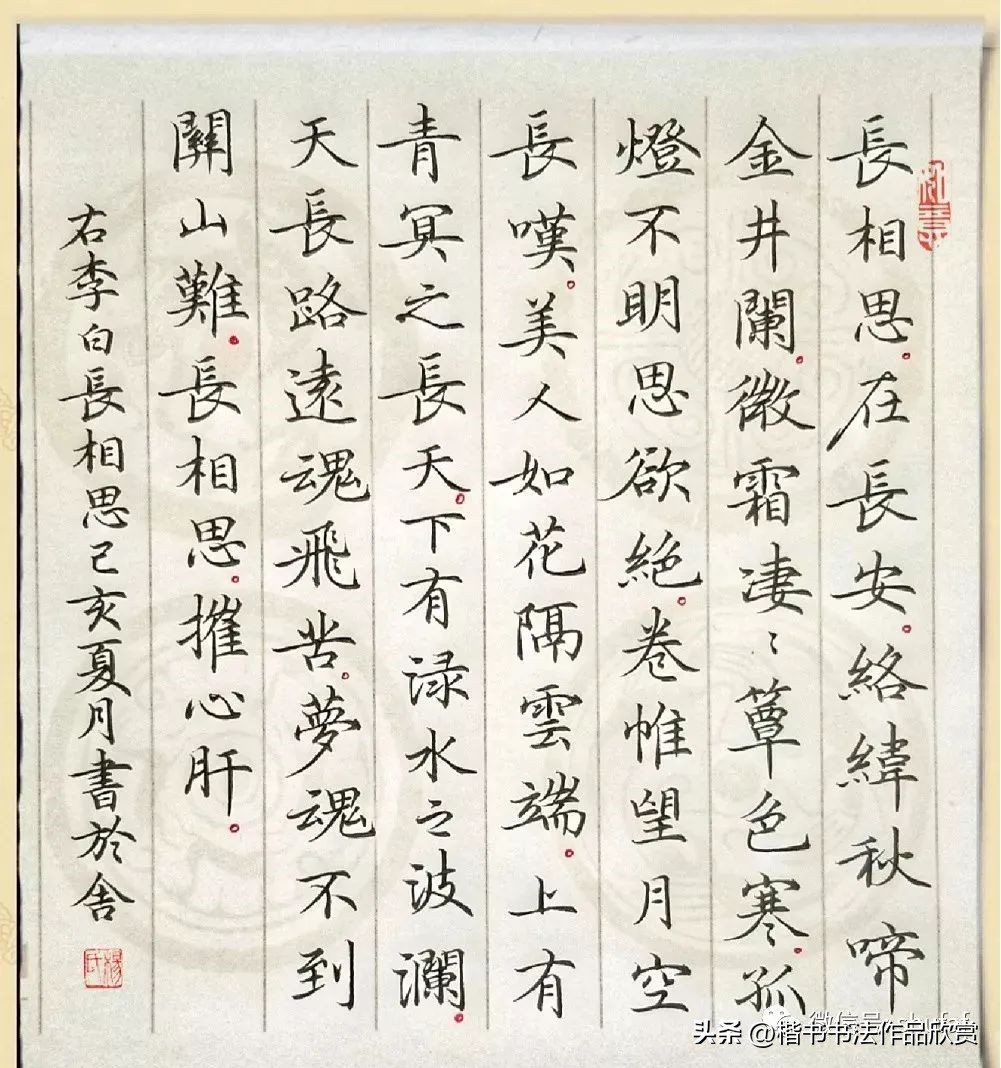 長相思。在長安。絡緯秋啼
金井闌。微霜淒〻簟色寒。孤
燈不明思欲絕。卷帷望月空
長嘆。美人如花隔雲端。上有
青冥之長天。下有淥水之波瀾。
天長路遠魂飛苦。夢魂不到
關山難。長相思。摧心肝。
右李白長相思己亥夏月書於舍
楊氏
头条 @楷书书法作品欣赏